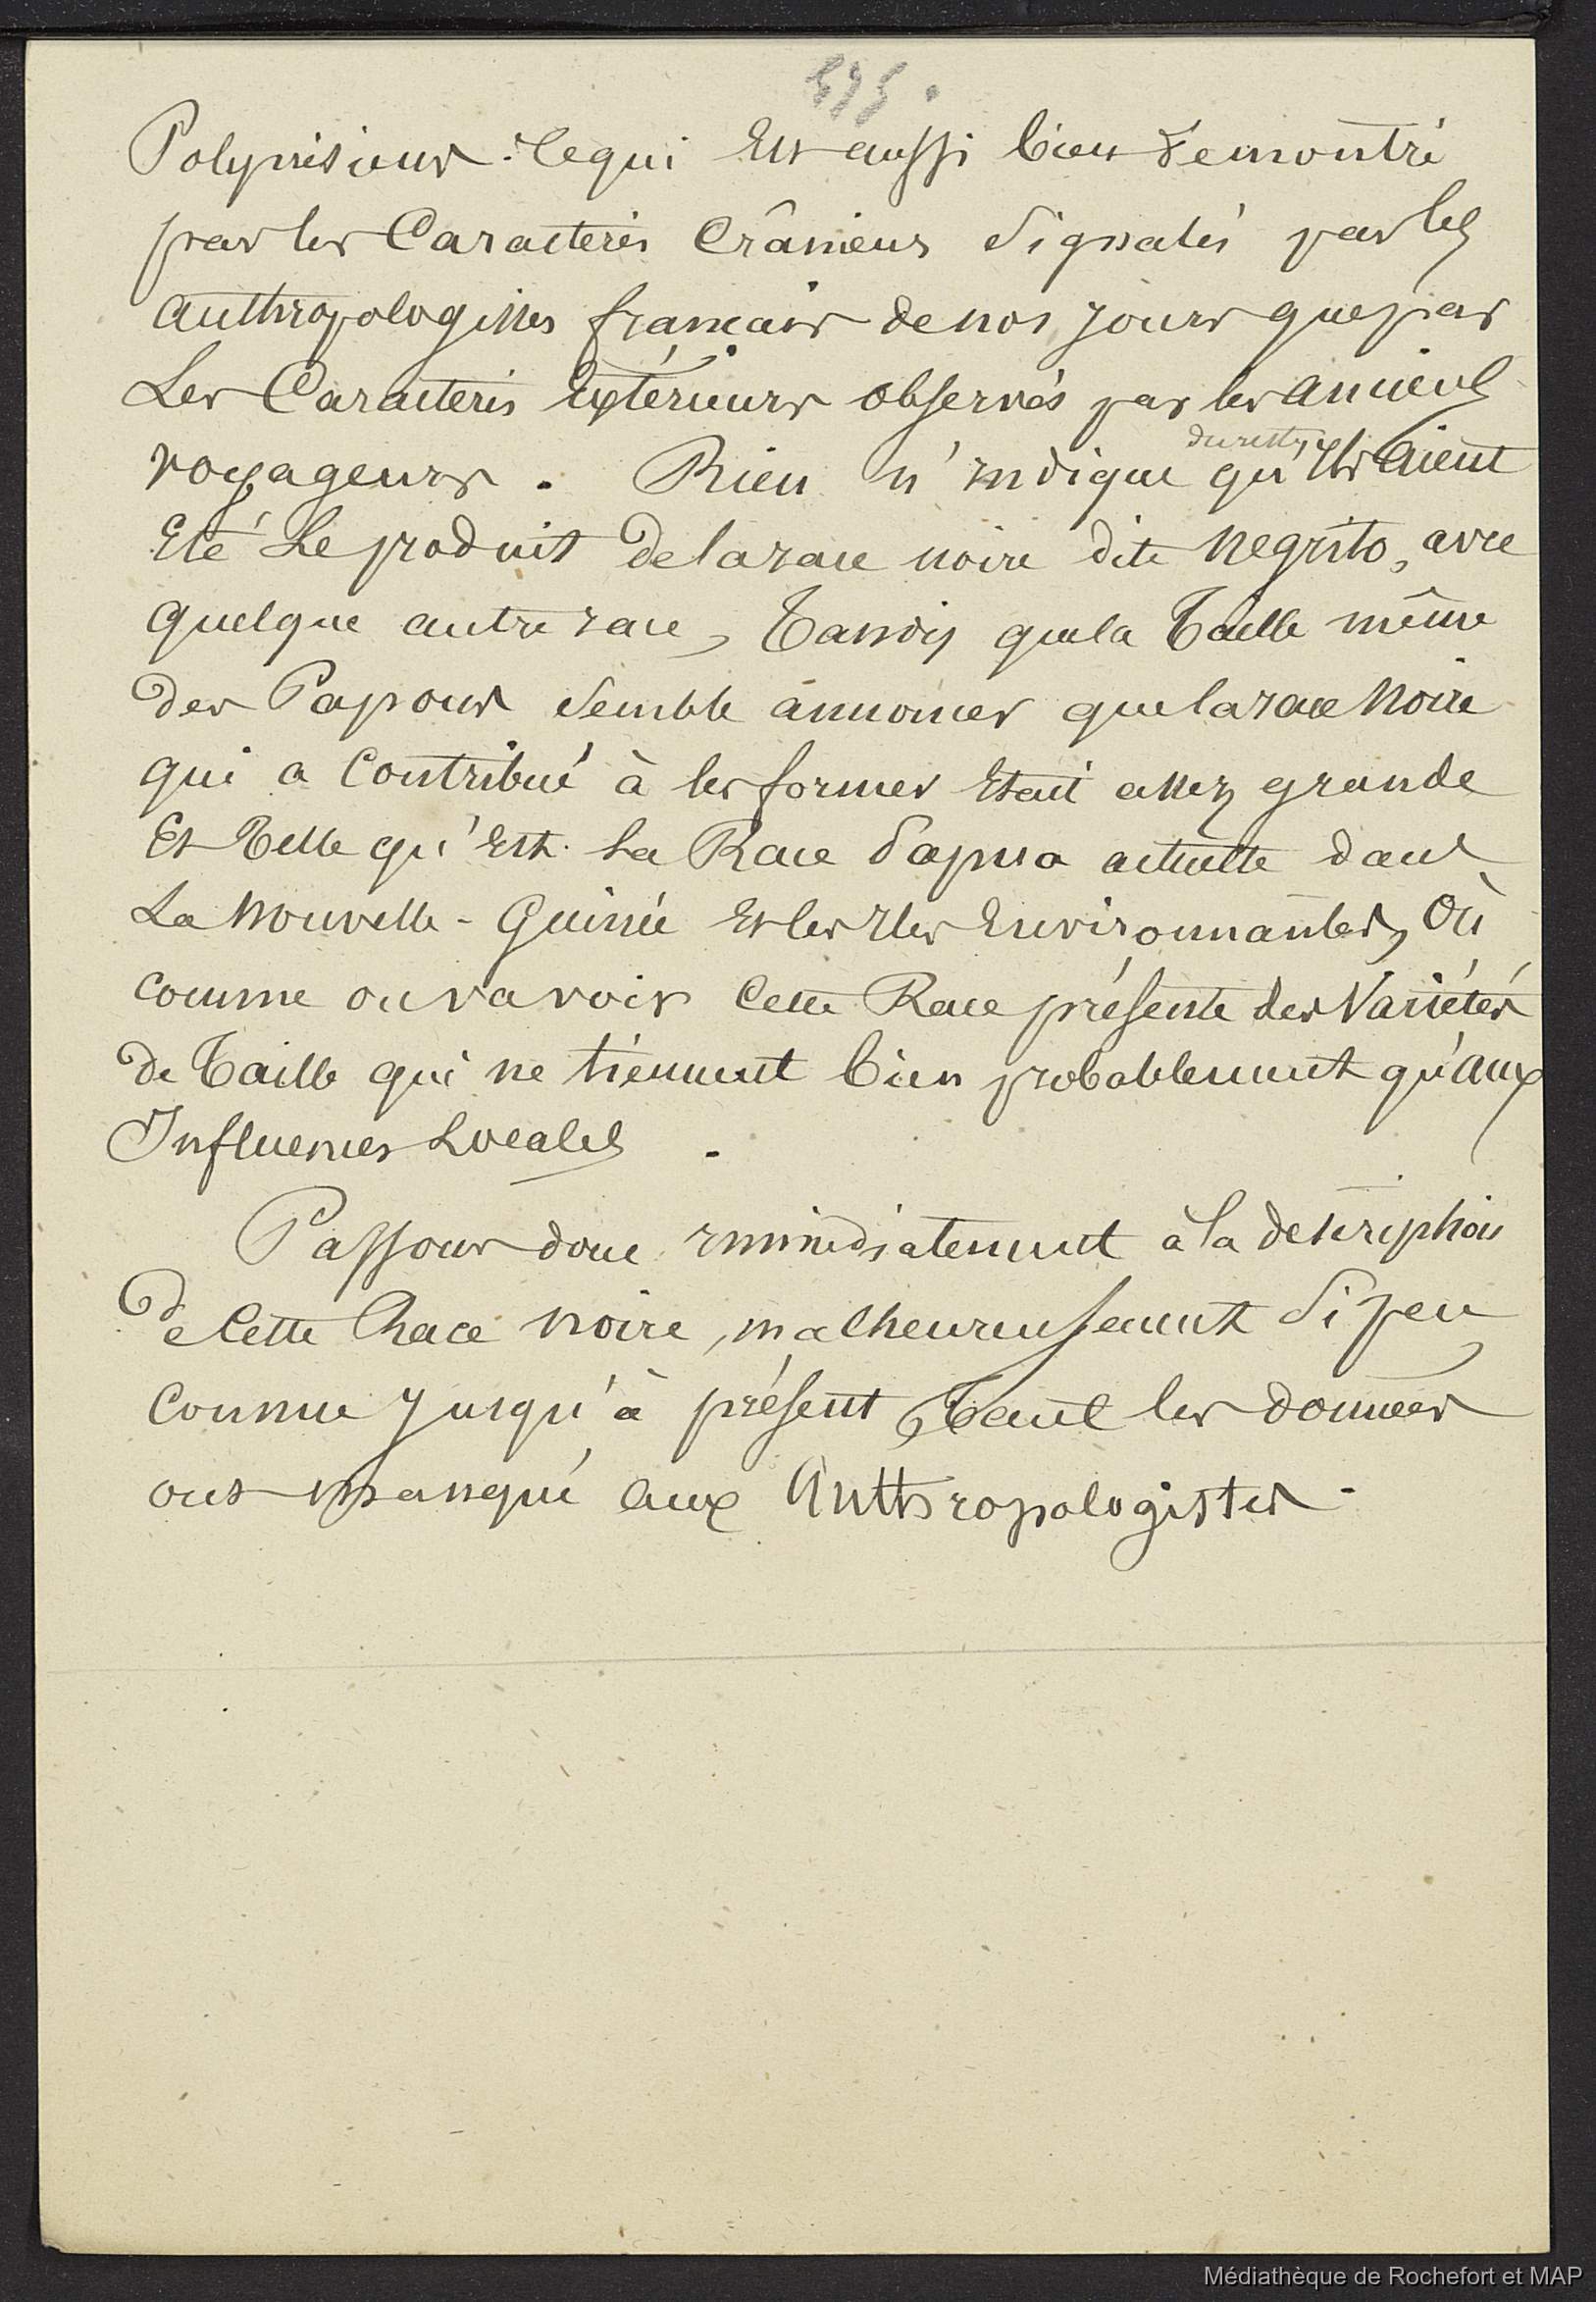 Polynésiens. Ce qui Est aussi bien démontré
par les Caractères Crâniens Signalés par les
anthropologistes français de nos jours que par
Les Caractères Extérieurs observés par les anciens
voyageurs. Rien n'indique du reste, qu'Ils aient
Eté Le produit de la race noire dite Negrito, avec
quelque autre race, Tandis que la Taille même
des Papous semble annoncer que la race Noire
qui a Contribué à les former Etait assez grande
Et Telle qu'Est La Race Papua actuelle dans
La Nouvelle-Guinée Et les Iles Environnantes, Où
comme on va voir Cette Race présente des Variétés
de Taille qui ne tiennent bien probablement qu'aux
Influences Locales.
Passons donc immédiatement à la description
de Cette Race noire, malheureusement si peu
connue Jusqu'à présent, Tant les données
ont manqué aux Anthropologistes.
Médiathèque de Rochefort et MAP